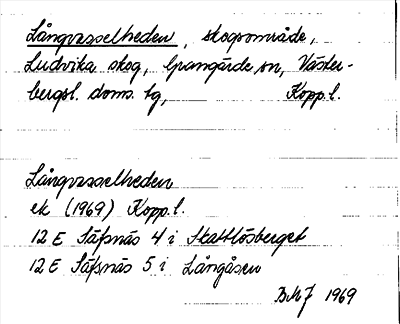 Långvasselheden, skogsområde,
Ludvika skog, Grangärde sn, Väster-
bergsl. doms. lg, Kopp.l.
Långvasselheden
ek (1969) Kopp.l.
12 E Säfsnäs 4 i Skattlösberget
12 E Säfsnäs 5 i Långåsen
1969